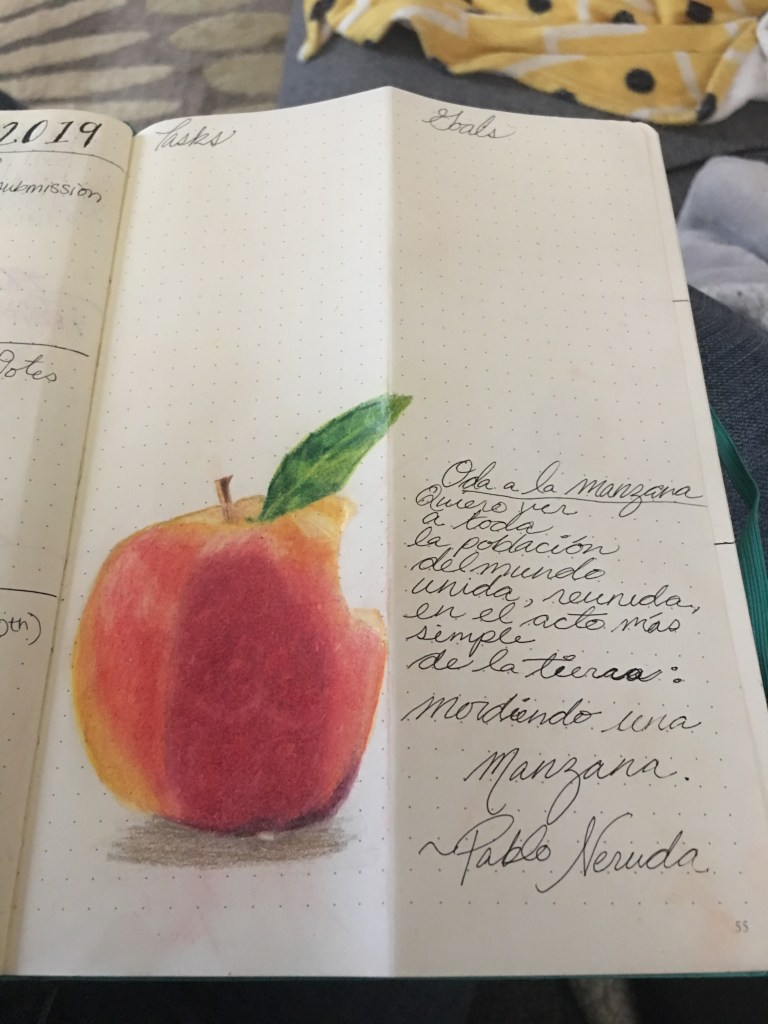 2019
submission
Notes
0th)
Tasks
Goals
Oda a la manzana
Quiero ver
a toda
la población
del mundo
unida, reunida,
en el acto más
simple
de la tierra:
mordiendo una
manzana.
~Pablo Neruda
55